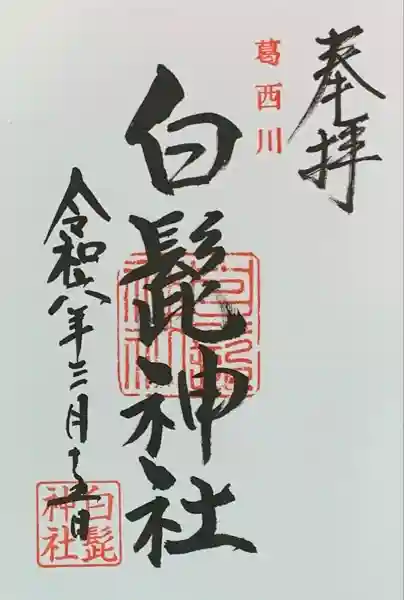 奉拝
葛西川
白髭神社
令和六年三月十五日
白髭神社
白髭神社